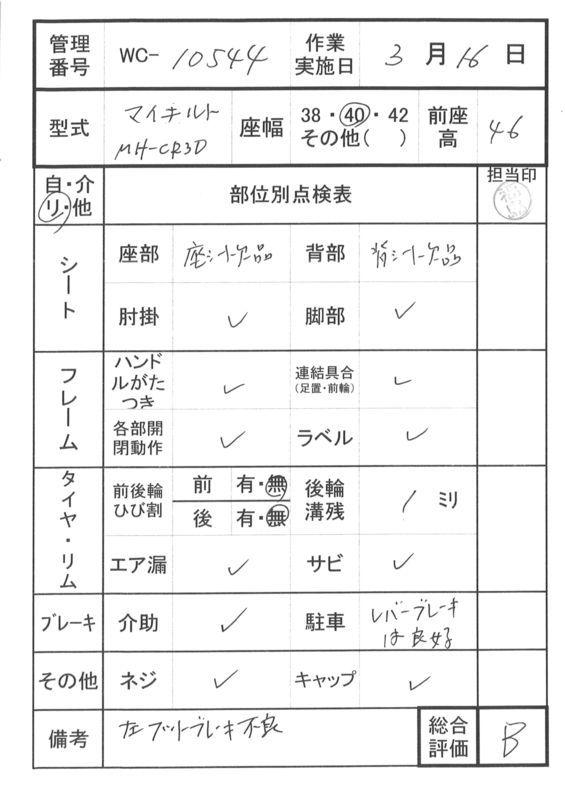 管理番号 WC- 10544 作業実施日 3 月 16 日
型式 マイチルト MH-CR3D 座幅 38・40・42 その他( ) 前座高 46
自・介リ・他 部位別点検表 担当印
シート 座部 座シート欠品 背部 背シート欠品
肘掛 ✓ 脚部 ✓
フレーム ハンドルがたつき ✓ 連結具合(足置・前輪) ✓
各部開閉動作 ✓ ラベル ✓
タイヤ・リム 前後輪ひび割 前 有・無 後輪溝残 1 ミリ
後 有・無
エア漏 ✓ サビ ✓
ブレーキ 介助 ✓ 駐車 レバーブレーキは良好
その他 ネジ ✓ キャップ ✓
備考 左フットブレーキ不良 総合評価 B